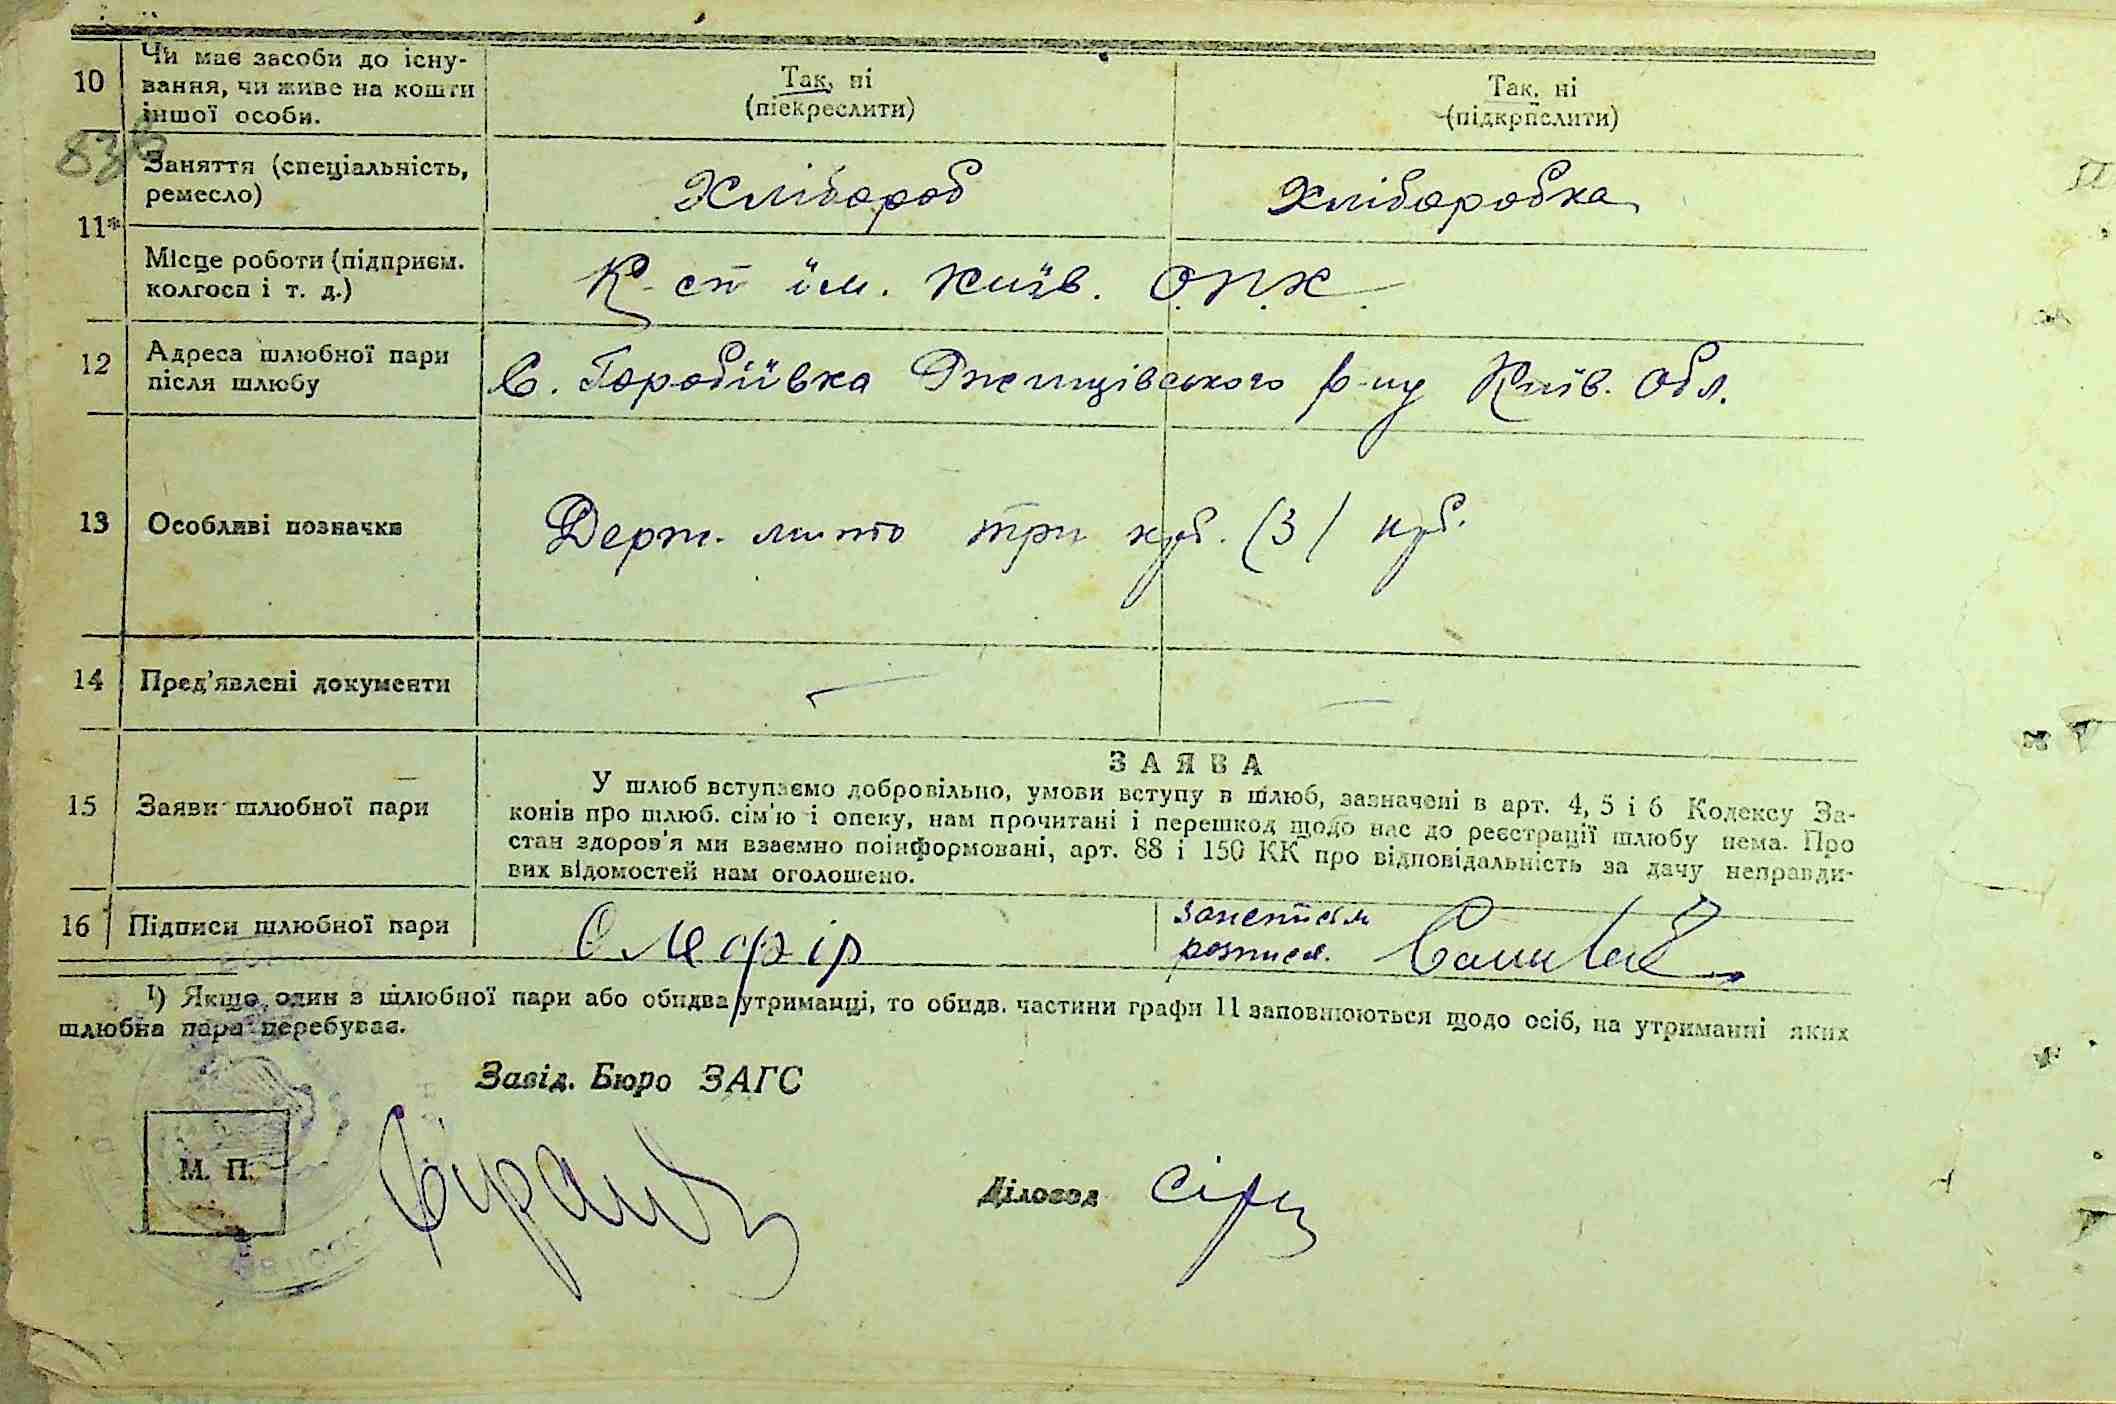 10
Чи має засоби до існу-
вання, чи живе на кошти
іншої особи.
Так, ні
(піекреслити)
Так, ні
(підкрпслити)
83
11*
Заняття (спеціальність,
ремесло)
Хлібороб
Хліборобка
Місце роботи (підприєм.
колгосп і т. д.)
К-сп ім. Київ. О.П.К.
12
Адреса шлюбної пари
після шлюбу
С. Горобіївка Ржищівського р-ну Київ. Обл.
13
Особливі позначки
Держ. мито три крб. (3) крб.
14
Пред'явлені документи
—
—
15
Заяви шлюбної пари
ЗАЯВА
У шлюб вступаємо добровільно, умови вступу в шлюб, зазначені в арт. 4, 5 і 6 Кодексу За-
конів про шлюб. сім'ю і опеку, нам прочитані і перешкод щодо нас до реєстрації шлюбу нема. Про
стан здоров'я ми взаємно поінформовані, арт. 88 і 150 КК про відповідальність за дачу неправди-
вих відомостей нам оголошено.
16
Підписи шлюбної пари
Омефір
розписа.
1) Якщо один з шлюбної пари або обидва утриманці, то обидв. частини графи 11 заповнюються щодо осіб, на утриманні яких
шлюбна пара перебуває.
Завід. Бюро ЗАГС
М. П.
Діловод